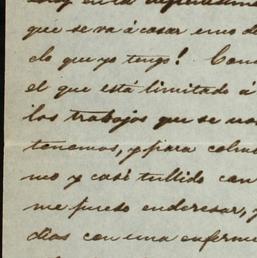 que se va á casar uno de
elo que yo tengo! Com
el que está limitado á
los trabajos que se nos
tenemos, y para colmo
mo y casi tullido con
me puedo enderesar, y
dias con una enferme